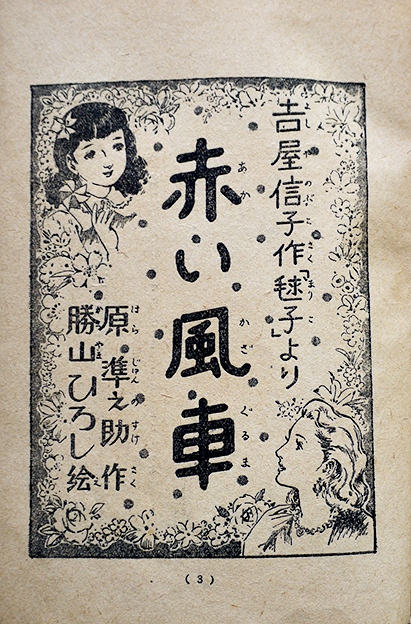 吉屋信子作「毬子」より
赤い風車
原準之助作
勝山ひろし絵
(3)